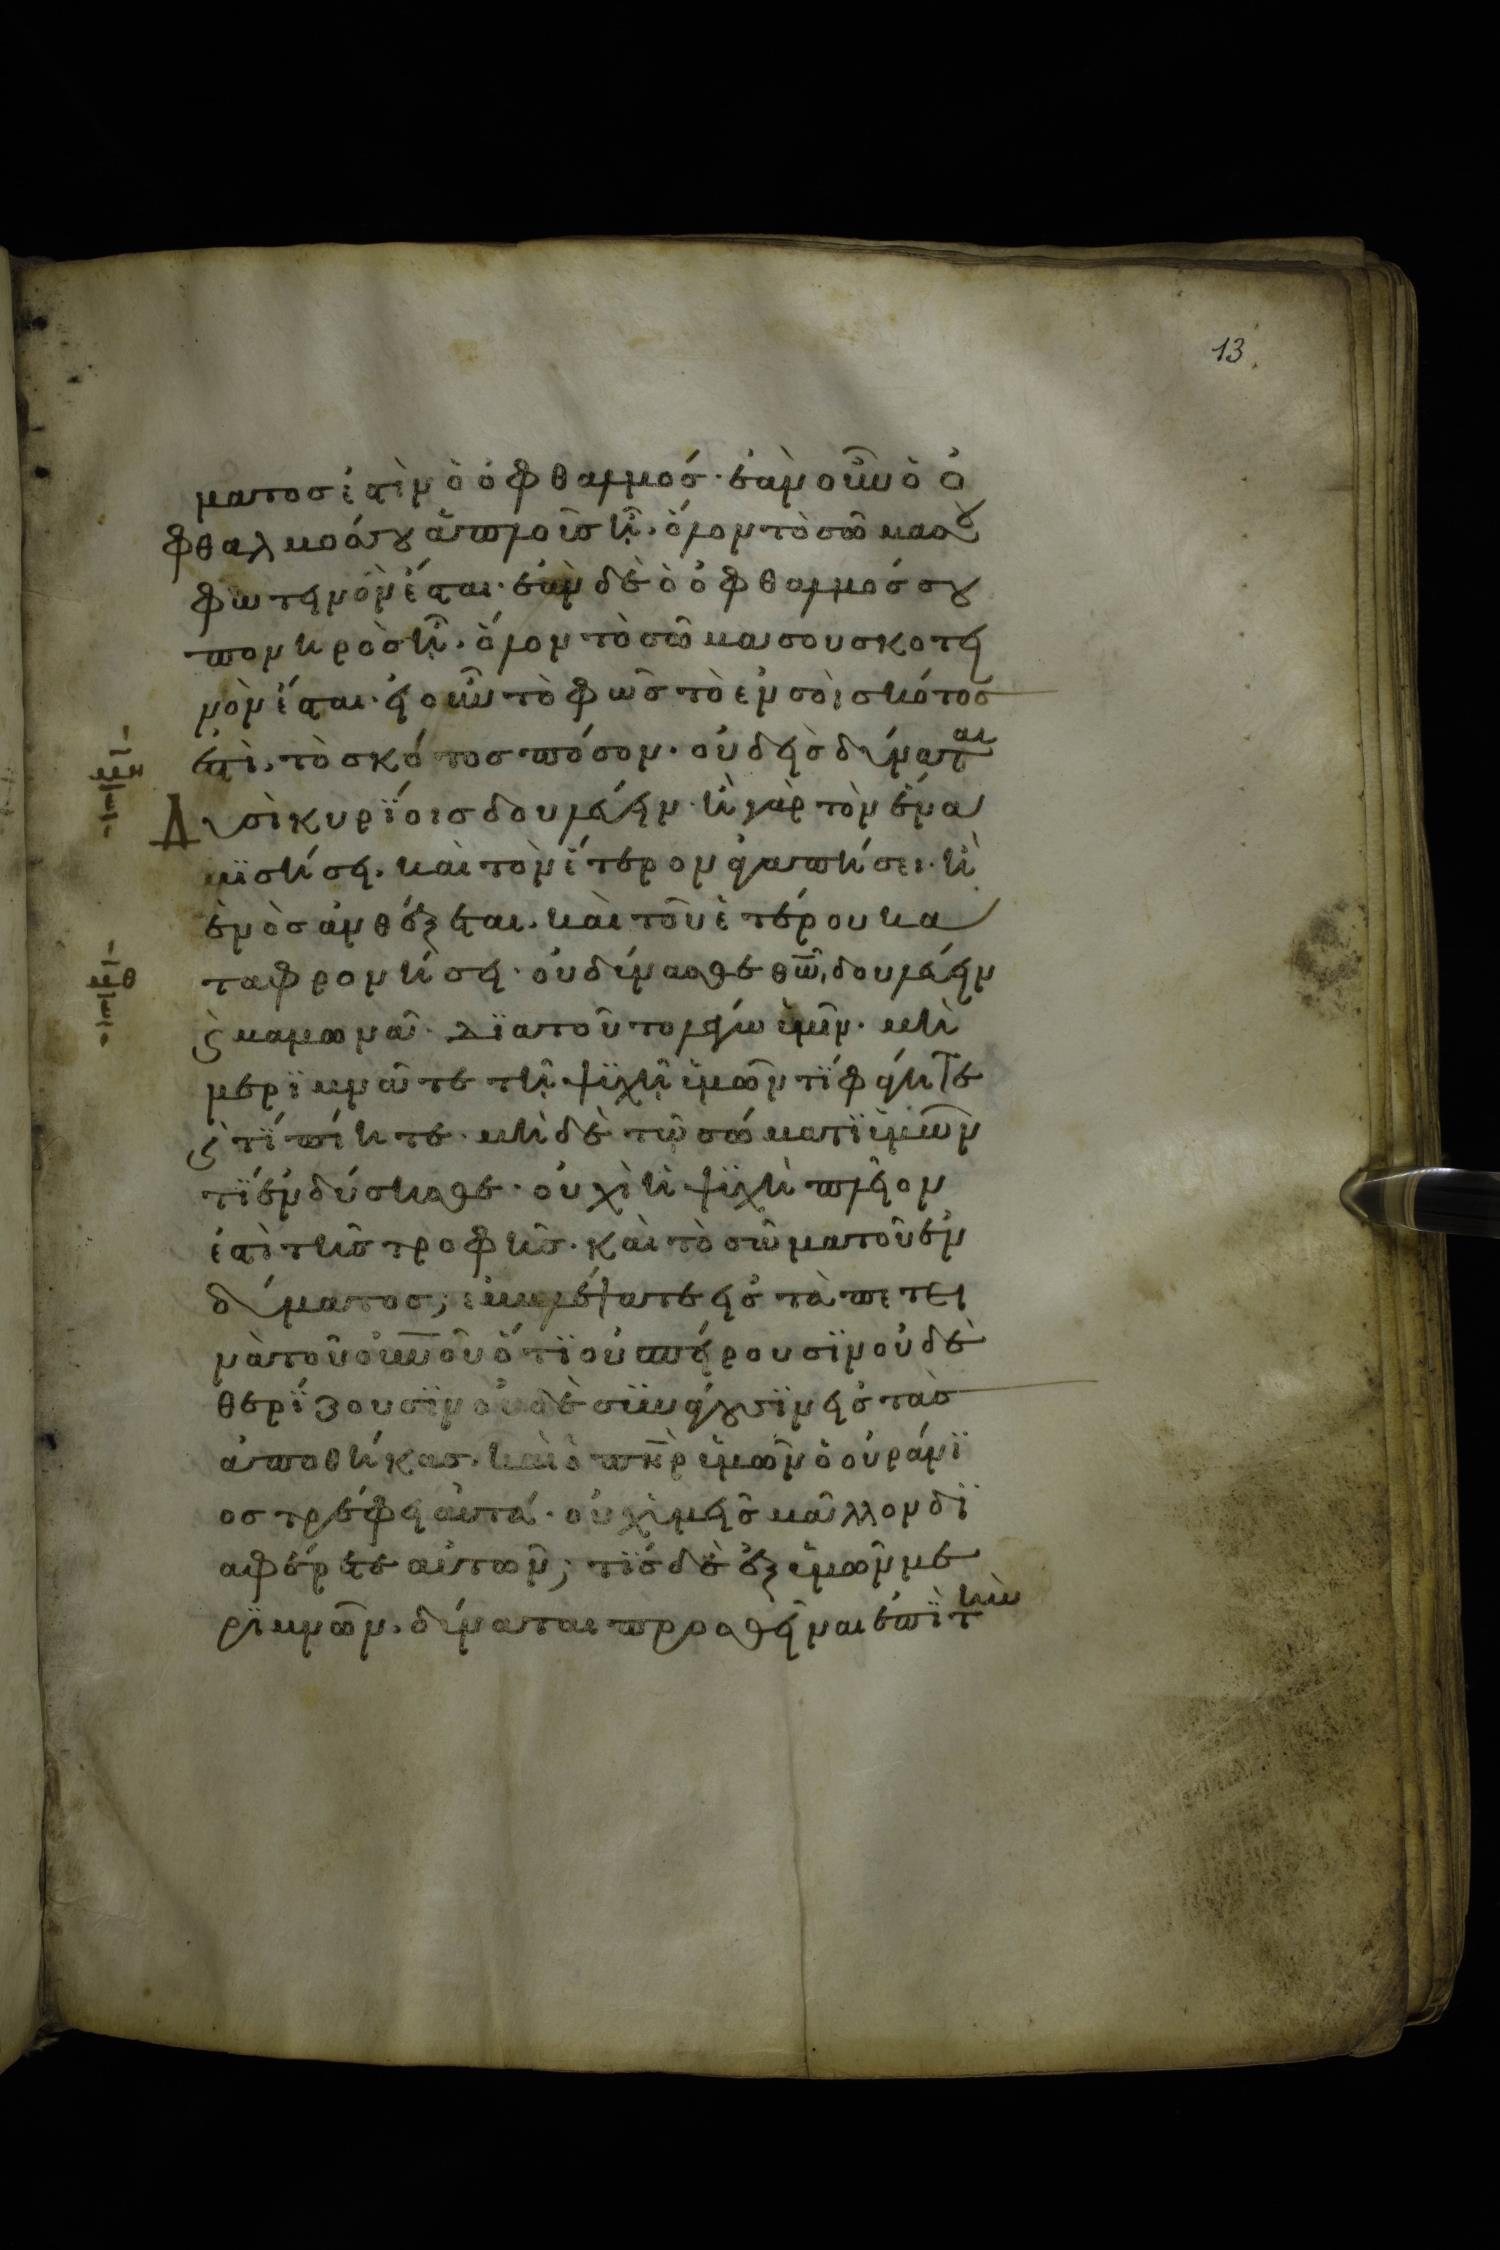 13
ματος ἐστὶν ὁ ὀφθαλμός· ἐὰν οὖν ὁ ὀ
φθαλμός σου ἁπλοῦς ᾖ, ὅλον τὸ σῶμα σου
φωτεινὸν ἔσται· ἐὰν δὲ ὁ ὀφθαλμός σου
πονηρὸς ᾖ, ὅλον τὸ σῶμα σου σκοτει
νὸν ἔσται· εἰ οὖν τὸ φῶς τὸ ἐν σοὶ σκότος
ἐστὶ, τὸ σκότος πόσον· οὐδεὶς δύναται
Δυσὶ κυρίοις δουλεύειν· ἢ γὰρ τὸν ἕνα
μισήσει, καὶ τὸν ἕτερον ἀγαπήσει· ἢ
ἑνὸς ἀνθέξεται, καὶ τοῦ ἑτέρου κα
ταφρονήσει· οὐ δύνασθε θῶ δουλεύειν
ϛ μαμωνᾶ· διατοῦτο λέγω ὑμῖν· μὴ
μεριμνᾶτε τῇ ψυχῇ ὑμῶν τί φάγητε
ϛ τί πίητε· μὴ δὲ τῷ σώματι ὑμῶν
τί ἐνδύσησθε· οὐχὶ ἡ ψυχὴ πλεῖον
ἐστὶ τῆς τροφῆς· καὶ τὸ σῶμα τοῦ ἐν
δύματος; ἐμβλέψατε εἰς τὰ πετει
νὰ τοῦ οὐνοῦ ὅτι οὐ σπείρουσιν οὐδὲ
θερίζουσιν οὐδὲ συνάγουσιν εἰς τὰς
ἀποθήκας· καὶ ὁ πηρ ὑμῶν ὁ οὐράνι
ος τρέφει αὐτά· οὐχ ὑμεῖς μᾶλλον δι
αφέρετε αὐτῶν; τίς δὲ ἐξ ὑμῶν με
ριμνῶν, δύναται προσθεῖναι ἐπὶ τὴν